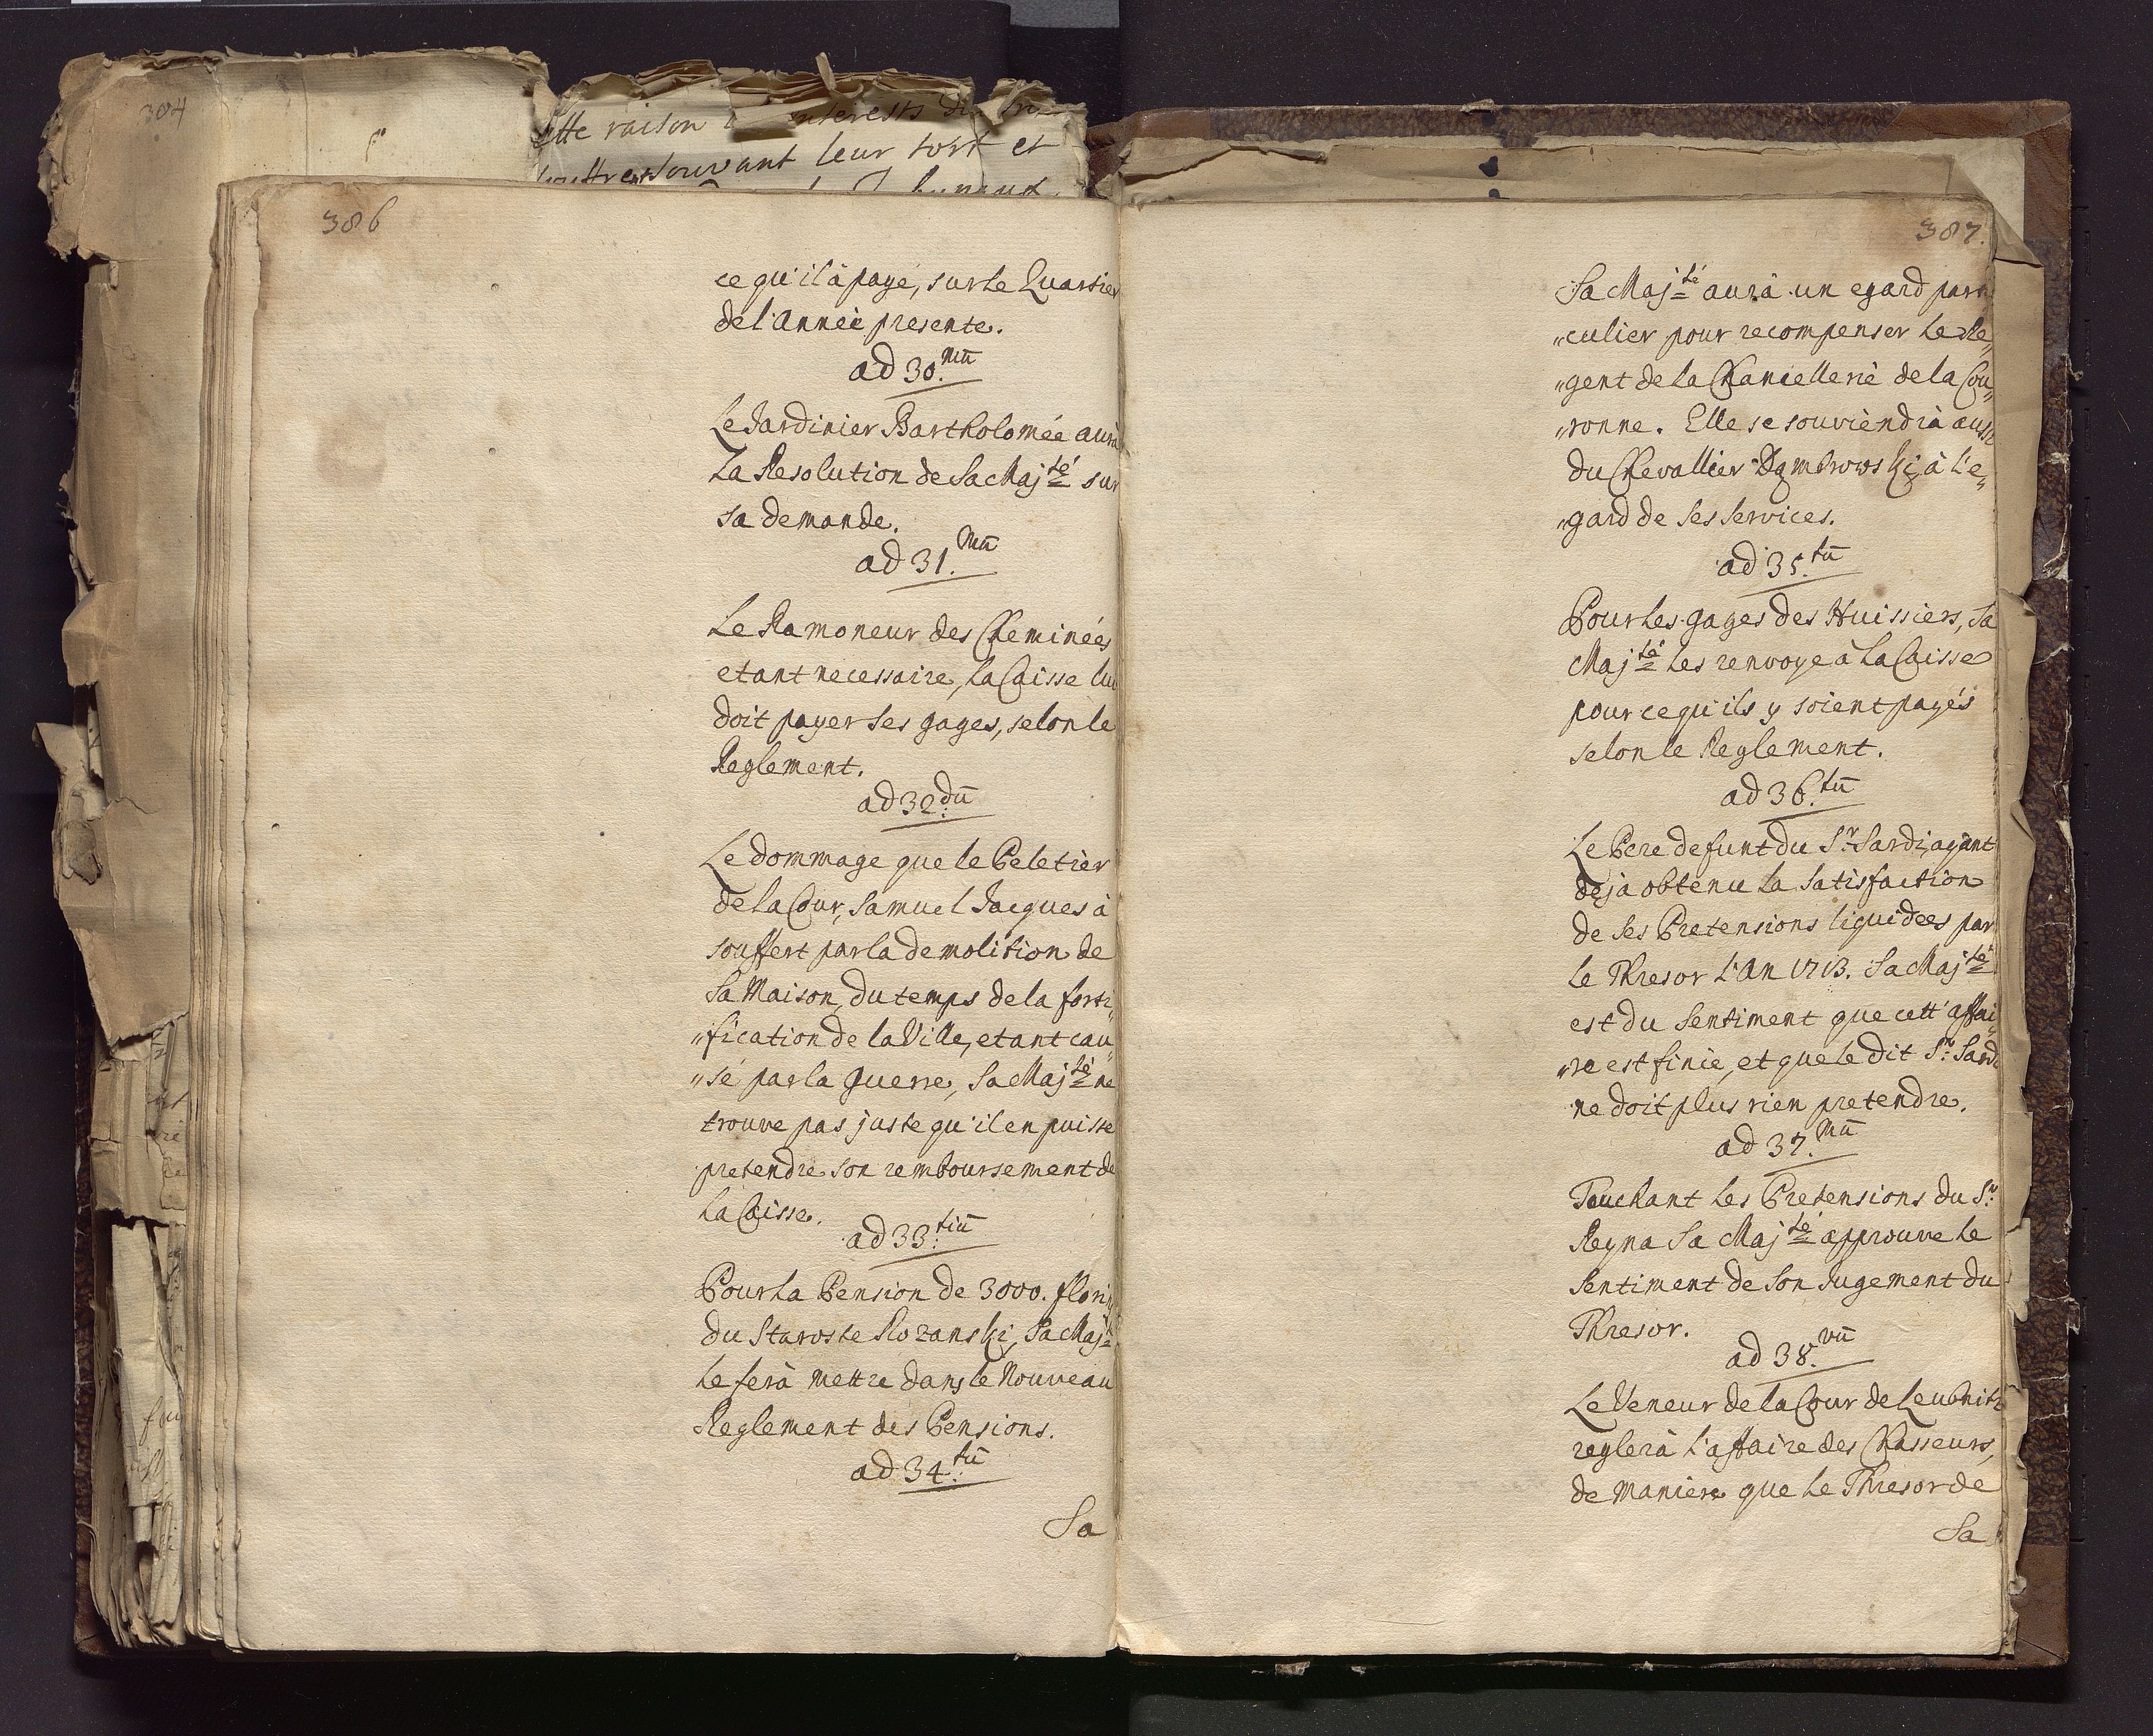 384
ette raison interests
souvant leur tort et
386
ce qu'il à payé, sur le Quartier
de l'Anneè presente.
ad 30.mū
Le Jardinier Bartholomée aurà
La Resolution de Sa Maj.té sur
sa demande.
ad 31.mū
Le Ramoneur des Cheminées
etant necessaire, la Caisse lui
doit payer ses gages, selon le
Reglement.
ad 32.dū
Le dommage que le Peletièr
de la Cour, Samuel Jacques à
souffert par la demolition de
Sa Maison, du temps de la forti„
„fication de la Ville, etant cau„
„sé par la Guerre, Sa Maj.té ne
trouve pas juste qu'il en puisse
pretendre son remboursement de
la Caisse.
ad 33.tiū
Pour la Pension de 3000. florin
du Staroste Rozanski, Sa Maj.té
le ferà mettre dans le Nouveau
Reglement des Pensions.
ad 34.tū
Sa
387.
Sa Maj.té aurà un egard parti
„culier pour recompenser le Re„
„gent de la Chancelleriè de la Cou„
„ronne. Elle se souviendrà aussi
du Chevallier Dąmbrowski, à l'e„
„gard de ses services.
ad 35.tū
Pour les gages des Huissiers, Sa
Maj.té les renvoye à la Caisse
pour ce qu'ils y soient payés
selon le Reglement.
ad 36.tū
Le Pere defunt du Sr. Sardi, ayant
deja obtenu la Satisfaction
de ses Pretensions liquidees par
le Thresor l'An 1713. Sa Maj.té
est du Sentiment que cett' affai„
„re est finie, et que le dit Sr. Sardi
ne doit plus rien pretendre.
ad 37.mū
Touchant les Pretensions du Sr.
Reyna Sa Maj.té approuve le
Sentiment de Son Jugement du
Thresor.
ad 38.vū
Le Veneur de la Cour de Leubnitz
reglerà l'affaire des Chasseurs,
de maniere que le Thresor de
Sa